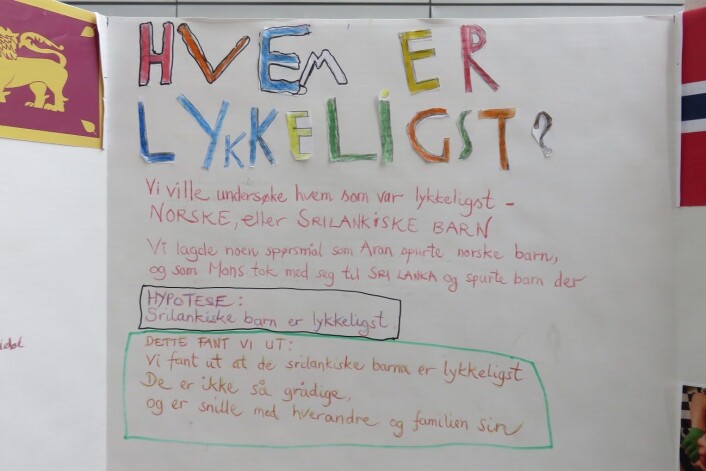 HVEM ER
LYKKELIGST?
Vi ville undersøke hvem som var lykkeligst -
NORSKE, eller SRILANKISKE BARN
Vi lagde noen spørsmål som Aran spurte norske barn,
og som Mons tok med seg til SRI LANKA og spurte barn der
HYPOTESE:
Srilankiske barn er lykkeligst
DETTE FANT VI UT:
Vi fant ut at de srilankiske barna er lykkeligst
De er ikke så grådige,
og er snille med hverandre og familien sin